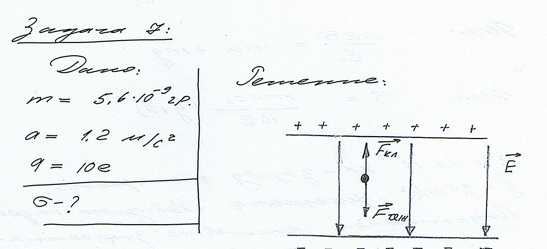 Задача 7:
Дано:
m = 5,6·10⁻⁹ гр.
a = 1.2 м/с²
q = 10e
σ - ?
Решение:
+ + + + + + +
F⃗кл
E⃗
F⃗тяж